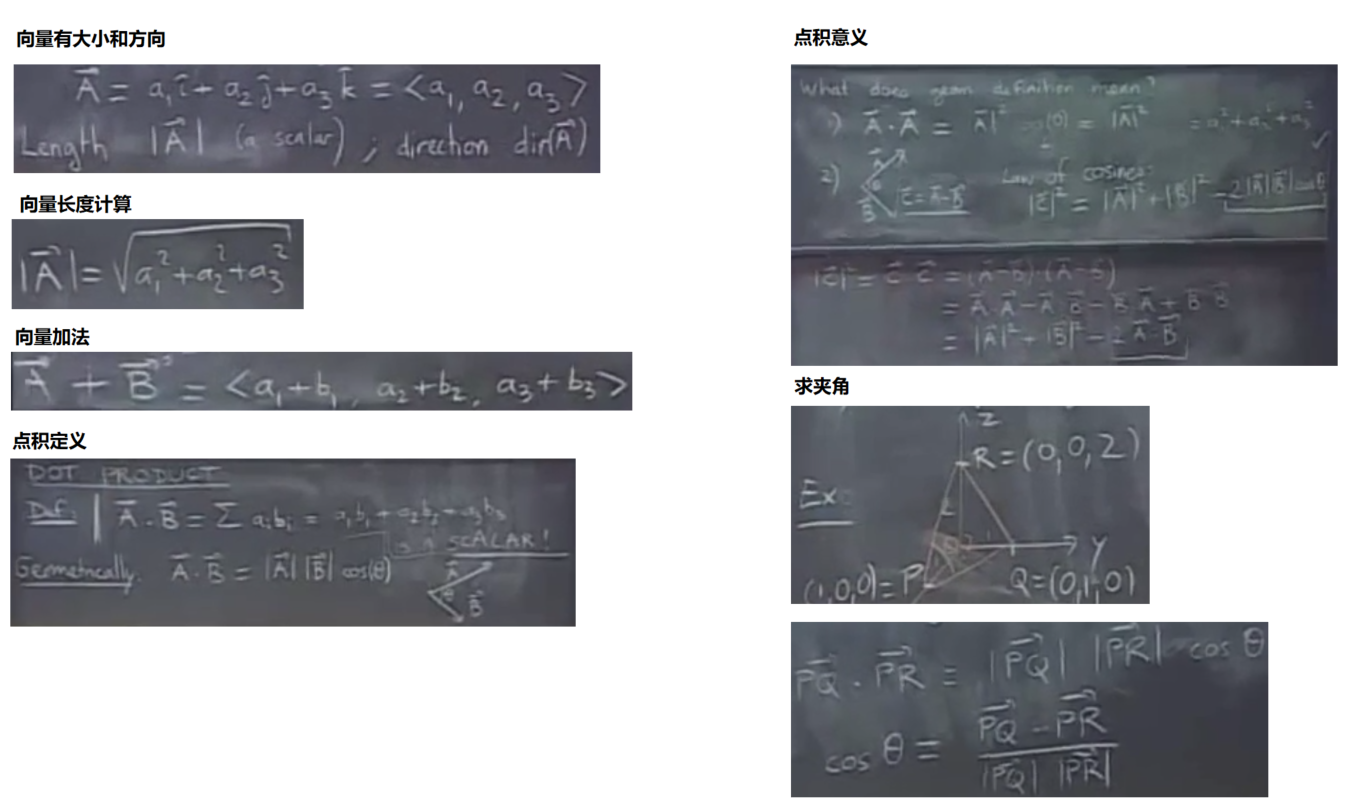 向量有大小和方向
A⃗ = a₁î + a₂ĵ + a₃k̂ = <a₁, a₂, a₃>
Length |A⃗| (a scalar) ; direction dir(A⃗)
向量长度计算
|A⃗| = √(a₁² + a₂² + a₃²)
向量加法
A⃗ + B⃗ = <a₁+b₁, a₂+b₂, a₃+b₃>
点积定义
DOT PRODUCT
Def: A⃗·B⃗ = Σ aᵢbᵢ = a₁b₁ + a₂b₂ + a₃b₃
is a SCALAR!
Geometrically: A⃗·B⃗ = |A⃗| |B⃗| cos(θ)
A⃗
θ
B⃗
点积意义
What does geom definition mean?
1) A⃗·A⃗ = |A⃗|² cos(0) = |A⃗|² = a₁² + a₂² + a₃² ✓
2) A⃗ θ B⃗ C⃗ = A⃗-B⃗
Law of cosines:
|C⃗|² = |A⃗|² + |B⃗|² - 2|A⃗||B⃗|cosθ
|C⃗|² = C⃗·C⃗ = (A⃗-B⃗)·(A⃗-B⃗)
= A⃗·A⃗ - A⃗·B⃗ - B⃗·A⃗ + B⃗·B⃗
= |A⃗|² + |B⃗|² - 2A⃗·B⃗
求夹角
Z
R = (0,0,2)
Ex:
2
1
y
(1,0,0) = P
Q = (0,1,0)
PQ⃗ · PR⃗ = |PQ⃗| |PR⃗| cos θ
cos θ = PQ⃗ - PR⃗ / |PQ⃗| |PR⃗|